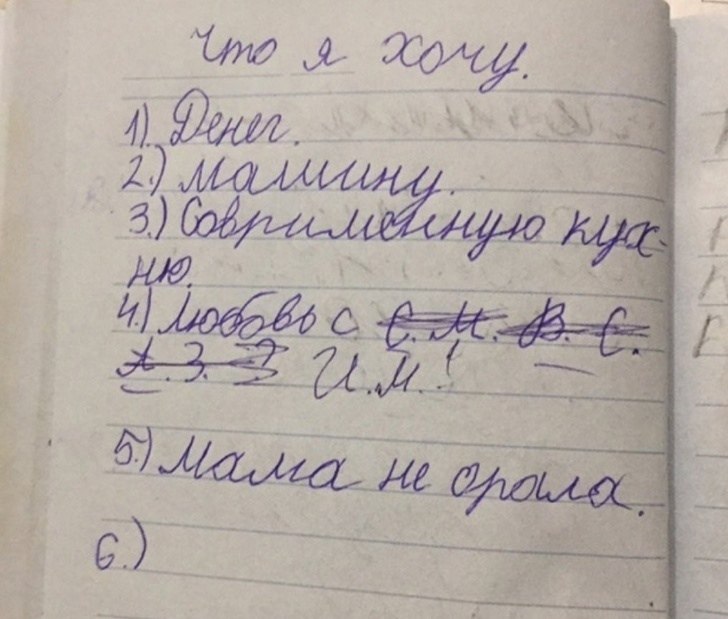 Что я хочу.
1). Денег.
2.) Машину.
3.) Совримену кух-
ню.
4.) Любовь с С. М. В. С.
А. З. З И.М.!
5.) Мама не орала.
6.)